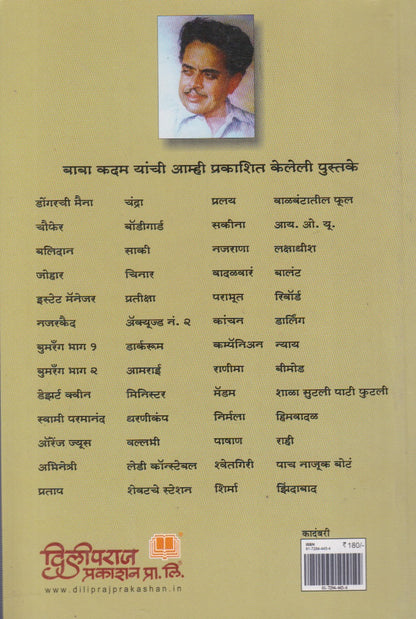 बाबा कदम यांची आम्ही प्रकाशित केलेली पुस्तके
डोंगरची मैना चंद्रा प्रलय वाळवंटातील फूल
चौफेर बॉडीगार्ड सकीना आय. ओ. यू.
बलिदान साकी नजराणा लक्षाधीश
जोहार चिनार वादळवारं बालंट
इस्टेट मॅनेजर प्रतीक्षा पराभूत रिवॉर्ड
नजरकैद ॲक्यूज्ड नं. २ कांचन डार्लिंग
बुमरँग भाग १ डार्करूम कम्पॅनिअन न्याय
बुमरँग भाग २ आमराई राणीमा बीमोड
डेझर्ट क्वीन मिनिस्टर मॅडम शाळा सुटली पाटी फुटली
स्वामी परमानंद धरणीकंप निर्मला हिमवादळ
ऑरेंज ज्यूस वल्लभी पाषाण राही
अभिनेत्री लेडी कॉन्स्टेबल श्वेतगिरी पाच नाजूक बोटं
प्रताप शेवटचे स्टेशन शिर्मा झिंदाबाद
कादंबरी
ISBN
₹ 180/-
दिलीपराज
प्रकाशन प्रा. लि.
www.diliprajprakashan.in